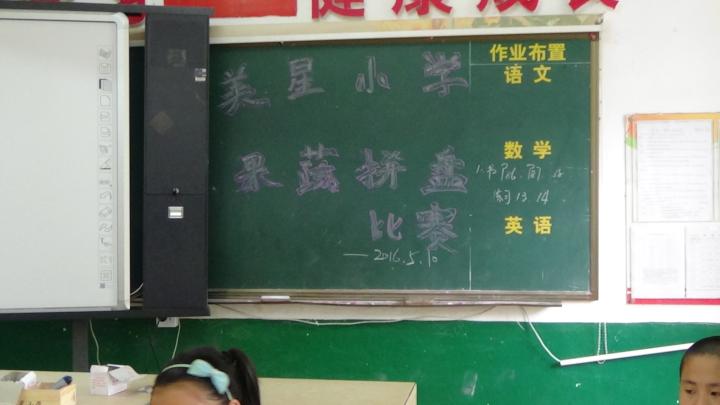 健康成长
美星小学
果蔬拼盘
比赛
—2016.5.10
作业布置
语文
数学
练习13.14
英语